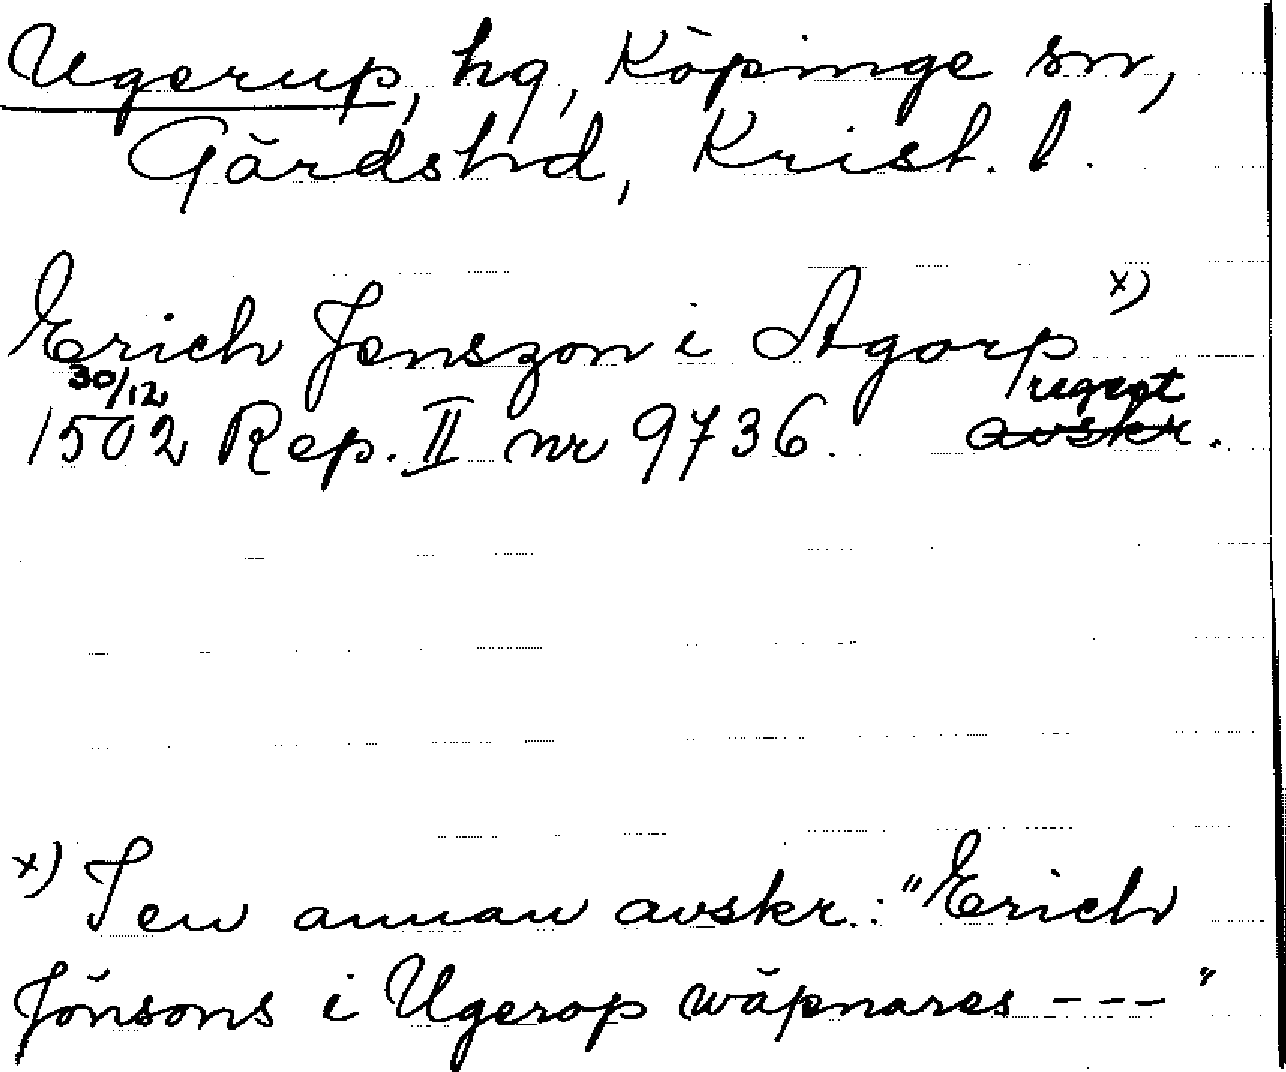 Ugerup, hg, Köpinge sn,
Gärdshd, Krist. l.
Erich Jenszon i Agorp x)
30/12
1502 Rep. II nr 9736. regest avskr.
x) I en annan avskr.: "Erich
Jönsons i Ugerop wäpnares --- "